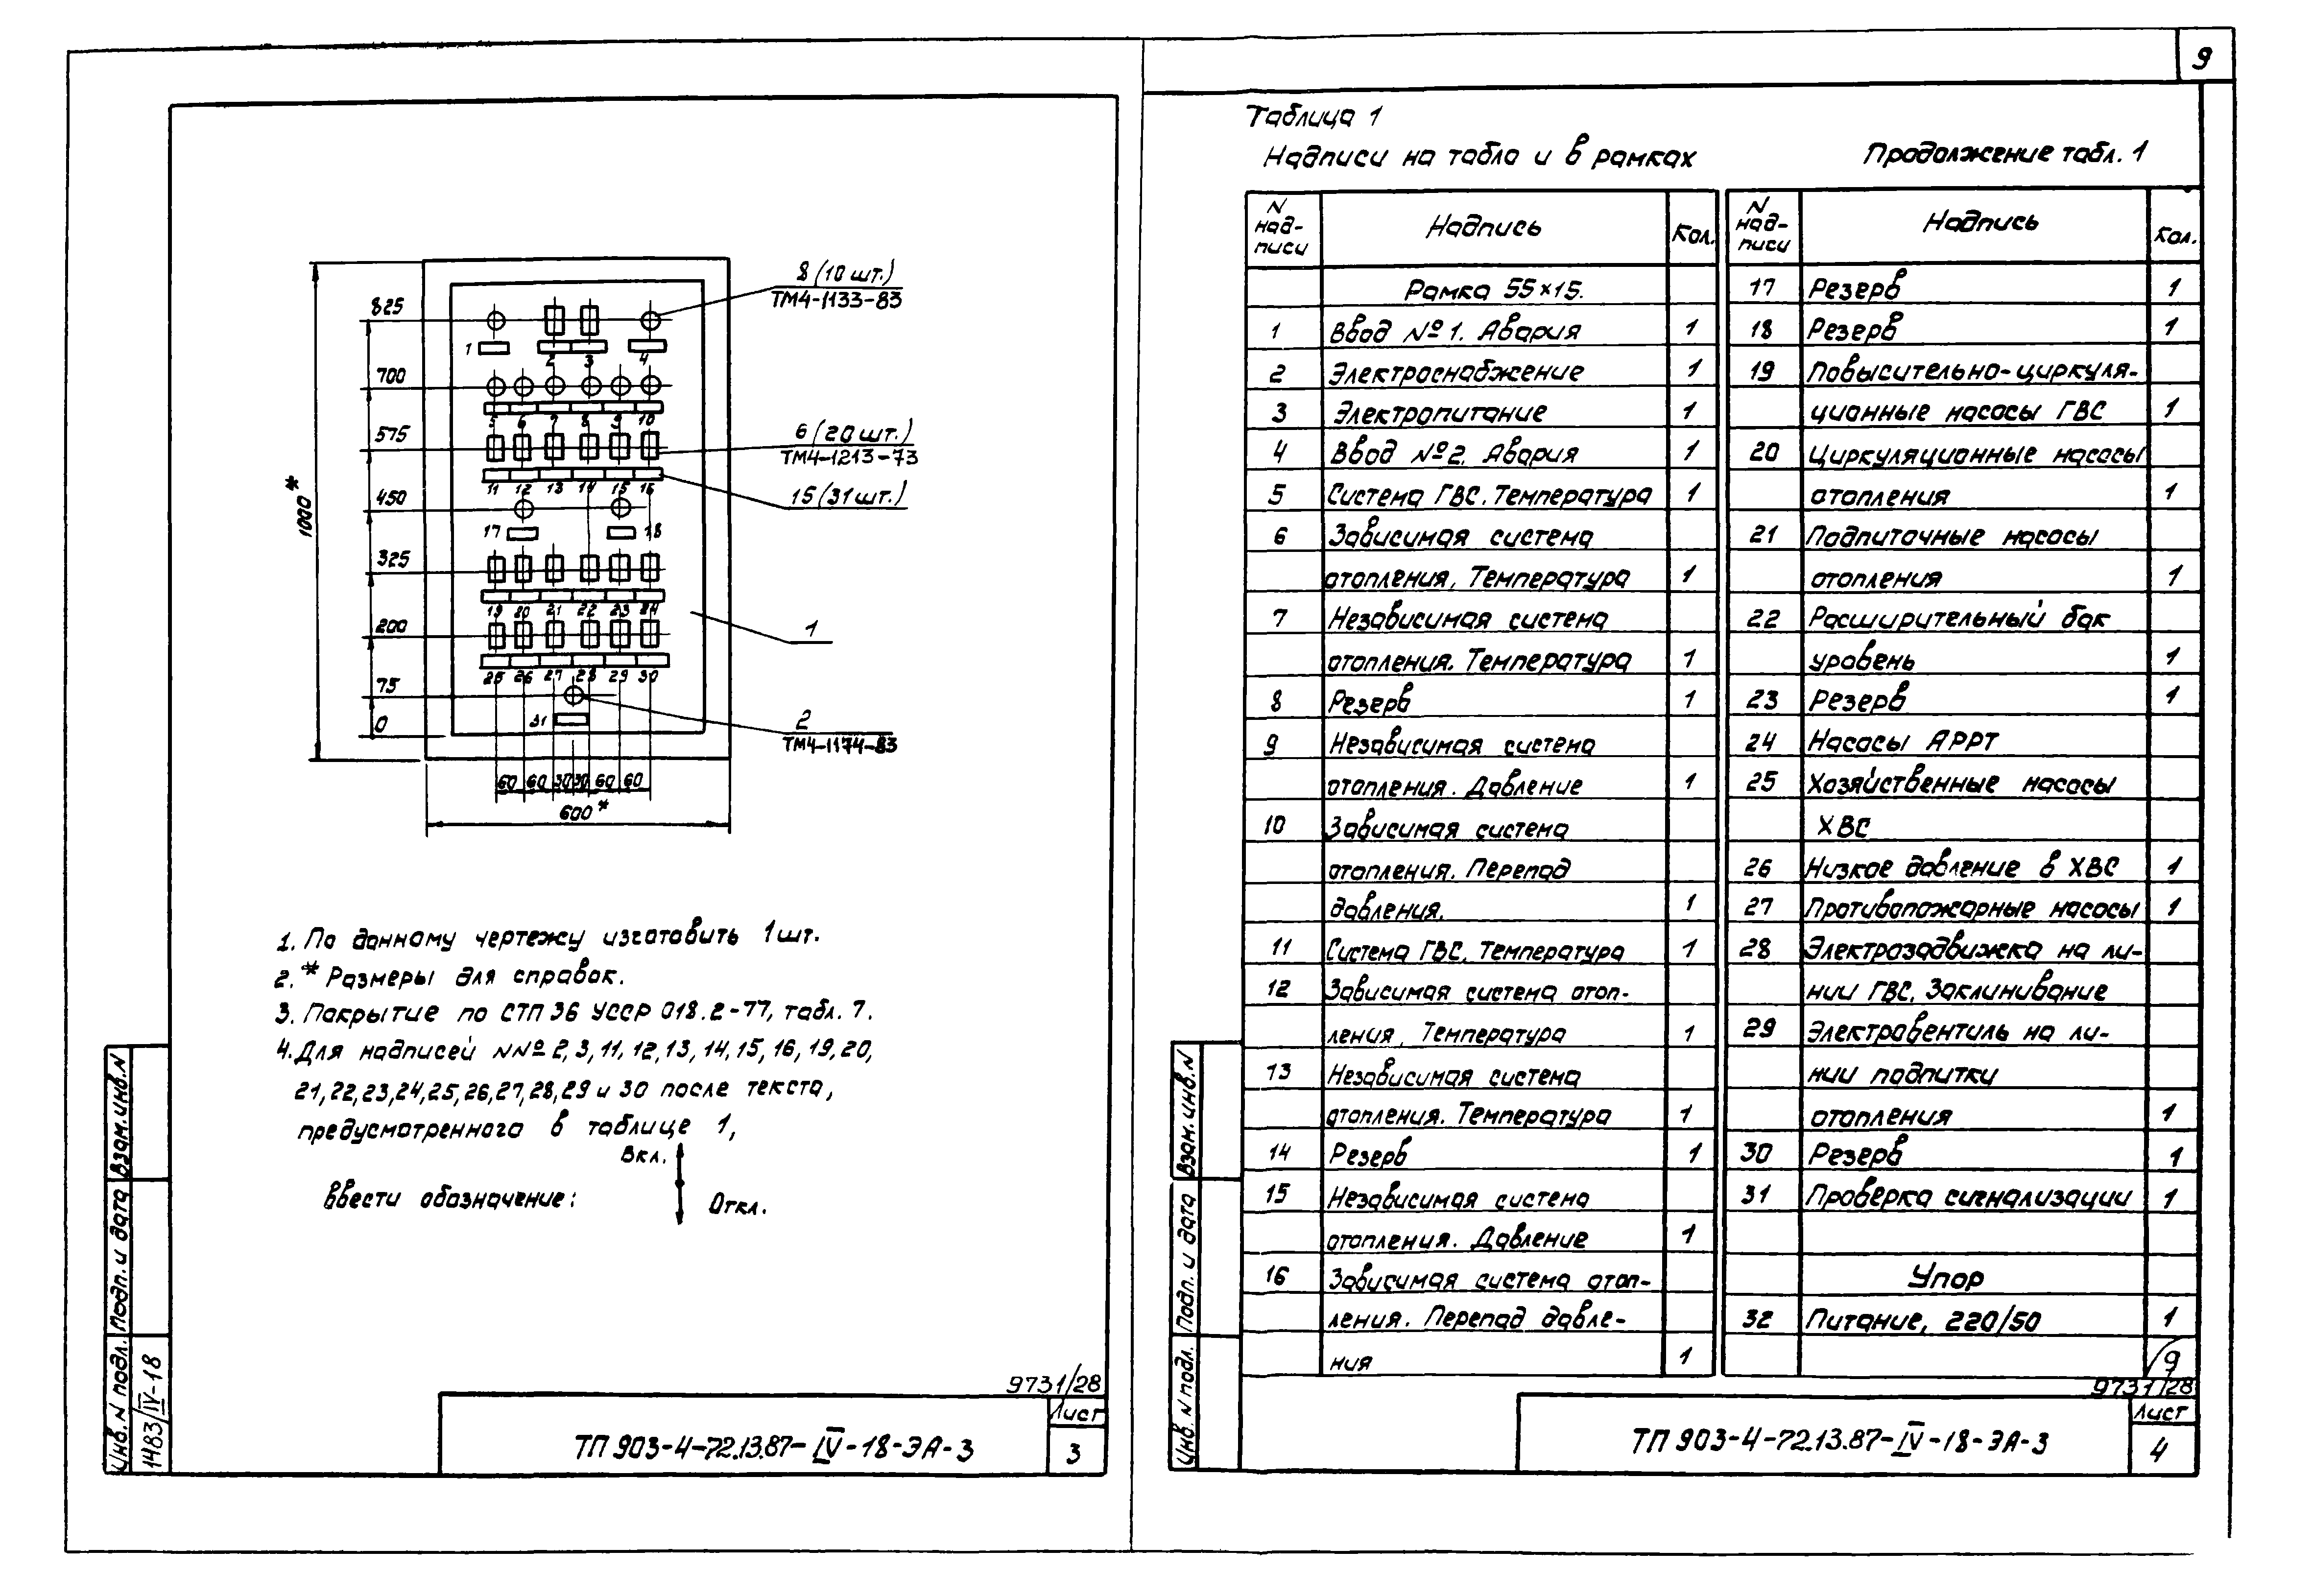 9
825
700
575
450
325
200
75
0
1000*
8 (10 шт.)
ТМ4-1133-83
6 (20 шт.)
ТМ4-1213-73
15 (31 шт.)
1
2
ТМ4-1174-83
1 2 3 4
5 6 7 8 9 10
11 12 13 14 15 16
17 18
19 20 21 22 23 24
25 26 27 28 29 30
31
60 60 30 30 60 60
600*
1. По данному чертежу изготовить 1 шт.
2. * Размеры для справок.
3. Покрытие по СТП 36 УССР 018.2-77, табл. 7.
4. Для надписей NNº 2, 3, 11, 12, 13, 14, 15, 16, 19, 20,
21, 22, 23, 24, 25, 26, 27, 28, 29 и 30 после текста,
предусмотренного в таблице 1,
Вкл.
ввести обозначение:
Откл.
Взам. инв. N
Подп. и дата
Инв. N подл.
1483/IV-18
9731/28
ТП 903-4-72.13.87-IV-18-ЭА-3
Лист
3
Таблица 1
Надписи на табло и в рамках
N надписи Надпись Кол.
Рамка 55×15.
1 Ввод Nº 1. Авария 1
2 Электроснабжение 1
3 Электропитание 1
4 Ввод Nº 2. Авария 1
5 Система ГВС. Температура 1
6 Зависимая система
отопления, Температура 1
7 Независимая система
отопления. Температура 1
8 Резерв 1
9 Независимая система
отопления. Давление 1
10 Зависимая система
отопления. Перепад
давления. 1
11 Система ГВС. Температура 1
12 Зависимая система отоп-
ления, Температура 1
13 Независимая система
отопления. Температура 1
14 Резерв 1
15 Независимая система
отопления. Давление 1
16 Зависимая система отоп-
ления. Перепад давле-
ния 1
Продолжение табл. 1
N над-
писи Надпись Кол.
17 Резерв 1
18 Резерв 1
19 Повысительно-циркуля-
ционные насосы ГВС 1
20 Циркуляционные насосы
отопления 1
21 Подпиточные насосы
отопления 1
22 Расширительный бак
уровень 1
23 Резерв 1
24 Насосы АРРТ
25 Хозяйственные насосы
ХВС
26 Низкое давление в ХВС 1
27 Противопожарные насосы 1
28 Электрозадвижка на ли-
нии ГВС. Заклинивание
29 Электровентиль на ли-
нии подпитки
отопления 1
30 Резерв 1
31 Проверка сигнализации 1
Упор
32 Питание, 220/50 1
9
9731/28
Взам. инв. N
Подп. и дата
Инв. N подл.
ТП 903-4-72.13.87-IV-18-ЭА-3
Лист
4